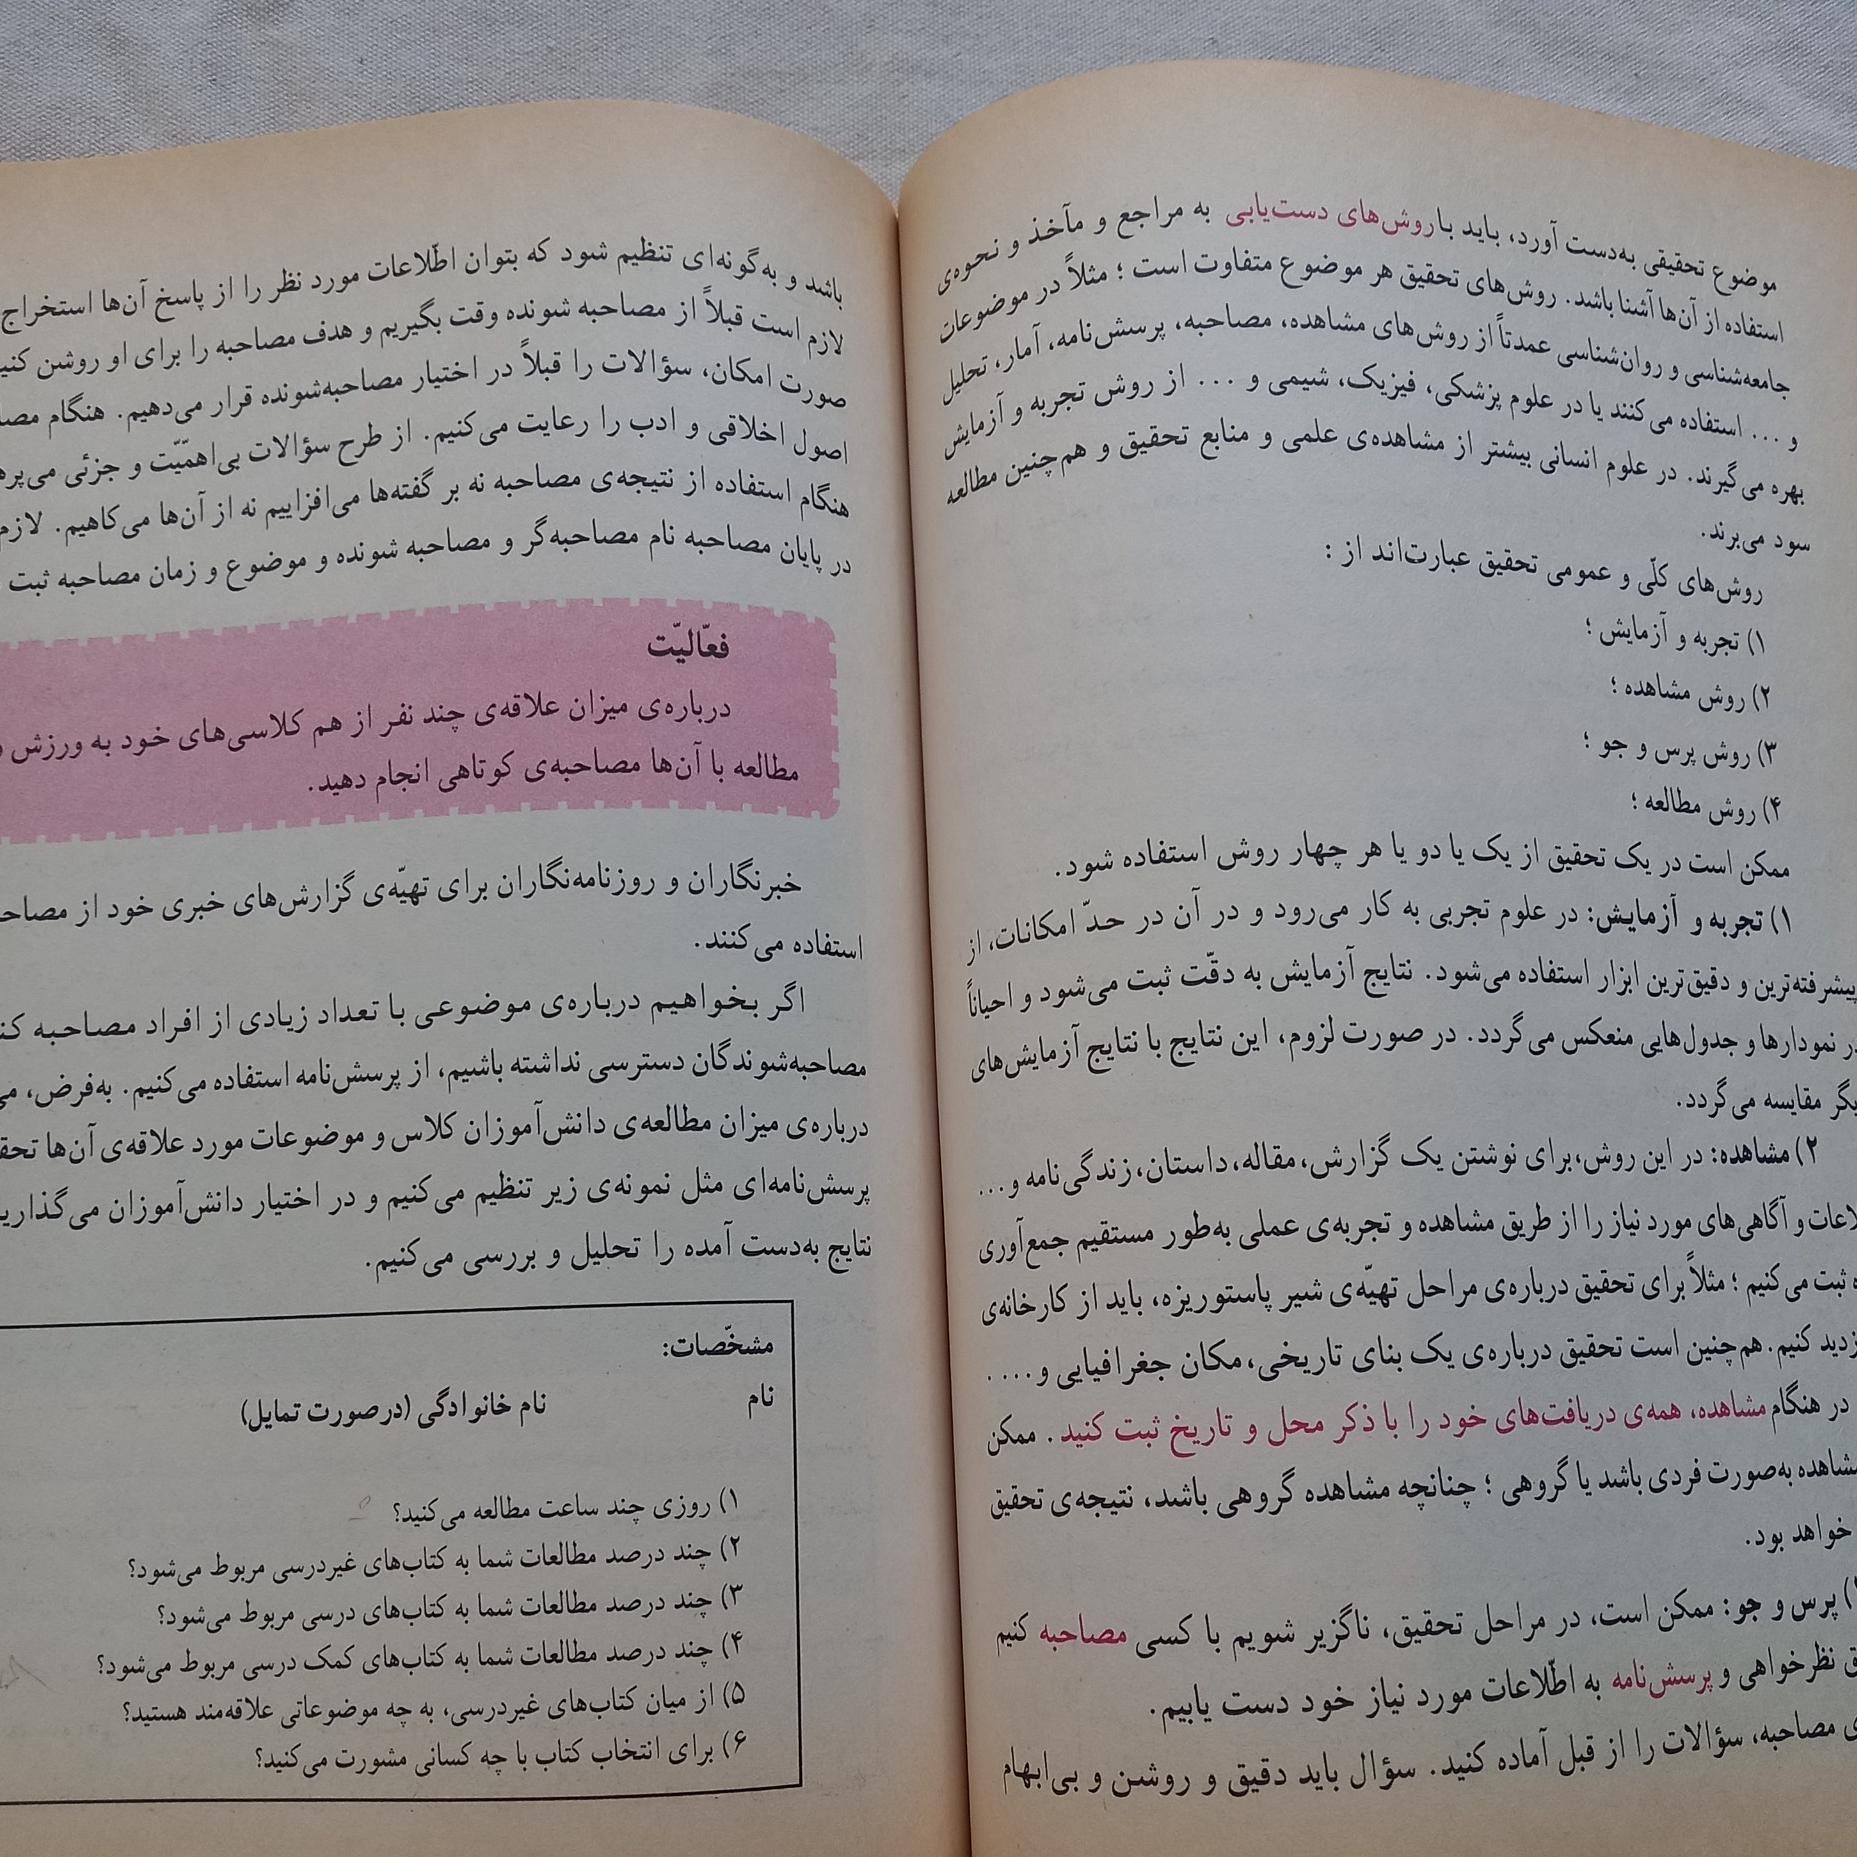 موضوع تحقیقی به‌دست آورد، باید با روش‌های دست‌یابی به مراجع و مآخذ و نحوه‌ی
استفاده از آن‌ها آشنا باشد. روش‌های تحقیق هر موضوع متفاوت است؛ مثلاً در موضوعات
جامعه‌شناسی و روان‌شناسی عمدتاً از روش‌های مشاهده، مصاحبه، پرسش‌نامه، آمار، تحلیل
و ... استفاده می‌کنند یا در علوم پزشکی، فیزیک، شیمی و ... از روش تجربه و آزمایش
بهره می‌گیرند. در علوم انسانی بیشتر از مشاهده‌ی علمی و منابع تحقیق و هم‌چنین مطالعه
سود می‌برند.
روش‌های کلّی و عمومی تحقیق عبارت‌اند از :
۱) تجربه و آزمایش؛
۲) روش مشاهده؛
۳) روش پرس و جو؛
۴) روش مطالعه؛
ممکن است در یک تحقیق از یک یا دو یا هر چهار روش استفاده شود.
۱) تجربه و آزمایش: در علوم تجربی به کار می‌رود و در آن در حدّ امکانات، از
پیشرفته‌ترین و دقیق‌ترین ابزار استفاده می‌شود. نتایج آزمایش به دقّت ثبت می‌شود و احیاناً
در نمودارها و جدول‌هایی منعکس می‌گردد. در صورت لزوم، این نتایج با نتایج آزمایش‌های
مقایسه می‌گردد.
۲) مشاهده: در این روش، برای نوشتن یک گزارش، مقاله، داستان، زندگی‌نامه و...
و آگاهی‌های مورد نیاز را از طریق مشاهده و تجربه‌ی عملی به‌طور مستقیم جمع‌آوری
ثبت می‌کنیم؛ مثلاً برای تحقیق درباره‌ی مراحل تهیّه‌ی شیر پاستوریزه، باید از کارخانه‌ی
کنیم. هم‌چنین است تحقیق درباره‌ی یک بنای تاریخی، مکان جغرافیایی و....
در هنگام مشاهده، همه‌ی دریافت‌های خود را با ذکر محل و تاریخ ثبت کنید. ممکن
مشاهده به‌صورت فردی باشد یا گروهی؛ چنانچه مشاهده گروهی باشد، نتیجه‌ی تحقیق
خواهد بود.
) پرس و جو: ممکن است، در مراحل تحقیق، ناگزیر شویم با کسی مصاحبه کنیم
نظرخواهی و پرسش‌نامه به اطّلاعات مورد نیاز خود دست یابیم.
مصاحبه، سؤالات را از قبل آماده کنید. سؤال باید دقیق و روشن و بی‌ابهام
باشد و به‌گونه‌ای تنظیم شود که بتوان اطّلاعات مورد نظر را از پاسخ آن‌ها استخراج
لازم است قبلاً از مصاحبه شونده وقت بگیریم و هدف مصاحبه را برای او روشن
صورت امکان، سؤالات را قبلاً در اختیار مصاحبه‌شونده قرار می‌دهیم. هنگام
اصول اخلاقی و ادب را رعایت می‌کنیم. از طرح سؤالات بی‌اهمّیّت و جزئی
هنگام استفاده از نتیجه‌ی مصاحبه نه بر گفته‌ها می‌افزاییم نه از آن‌ها می‌کاهیم. لازم
در پایان مصاحبه نام مصاحبه‌گر و مصاحبه شونده و موضوع و زمان مصاحبه ثبت
فعّالیّت
درباره‌ی میزان علاقه‌ی چند نفر از هم کلاسی‌های خود به ورزش
مطالعه با آن‌ها مصاحبه‌ی کوتاهی انجام دهید.
خبرنگاران و روزنامه‌نگاران برای تهیّه‌ی گزارش‌های خبری خود از
استفاده می‌کنند.
اگر بخواهیم درباره‌ی موضوعی با تعداد زیادی از افراد مصاحبه
مصاحبه‌شوندگان دسترسی نداشته باشیم، از پرسش‌نامه استفاده می‌کنیم. به‌فرض،
درباره‌ی میزان مطالعه‌ی دانش‌آموزان کلاس و موضوعات مورد علاقه‌ی آن‌ها
پرسش‌نامه‌ای مثل نمونه‌ی زیر تنظیم می‌کنیم و در اختیار دانش‌آموزان
نتایج به‌دست آمده را تحلیل و بررسی می‌کنیم.
مشخّصات:
نام نام خانوادگی (در صورت تمایل)
۱) روزی چند ساعت مطالعه می‌کنید؟
۲) چند درصد مطالعات شما به کتاب‌های غیردرسی مربوط می‌شود؟
۳) چند درصد مطالعات شما به کتاب‌های درسی مربوط می‌شود؟
۴) چند درصد مطالعات شما به کتاب‌های کمک درسی مربوط می‌شود؟
۵) از میان کتاب‌های غیردرسی، به چه موضوعاتی علاقه‌مند هستید؟
۶) برای انتخاب کتاب با چه کسانی مشورت می‌کنید؟